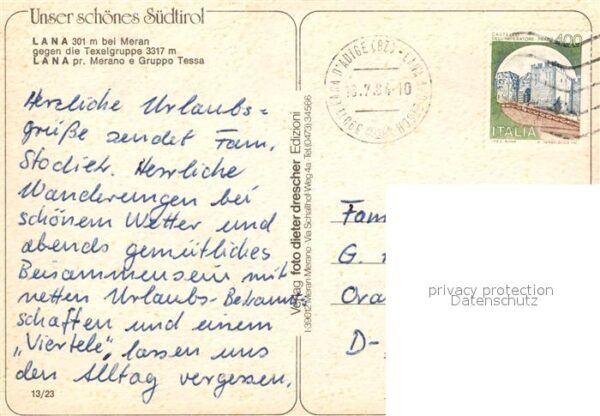 Unser schönes Südtirol
LANA 301 m bei Meran
gegen die Texelgruppe 3317 m
LANA pr. Merano e Gruppo Tessa
Herzliche Urlaubs-
grüße sendet Fam.
Herrliche
Wanderungen bei
schönem Wetter und
abends gemütliches
Beisammensein mit
netten Urlaubs-Bekannt-
schaften und einem
„Viertele" lassen uns
den Alltag vergessen.
13/23
Verlag foto dieter drescher Edizioni
I-39012 Meran Merano · Via Schaffer Weg 4a · Tel. (0473) 34566
LANA D'ADIGE (BZ)
18.7.84-10
400
ITALIA
Fam
G.
D-
privacy protection
Datenschutz